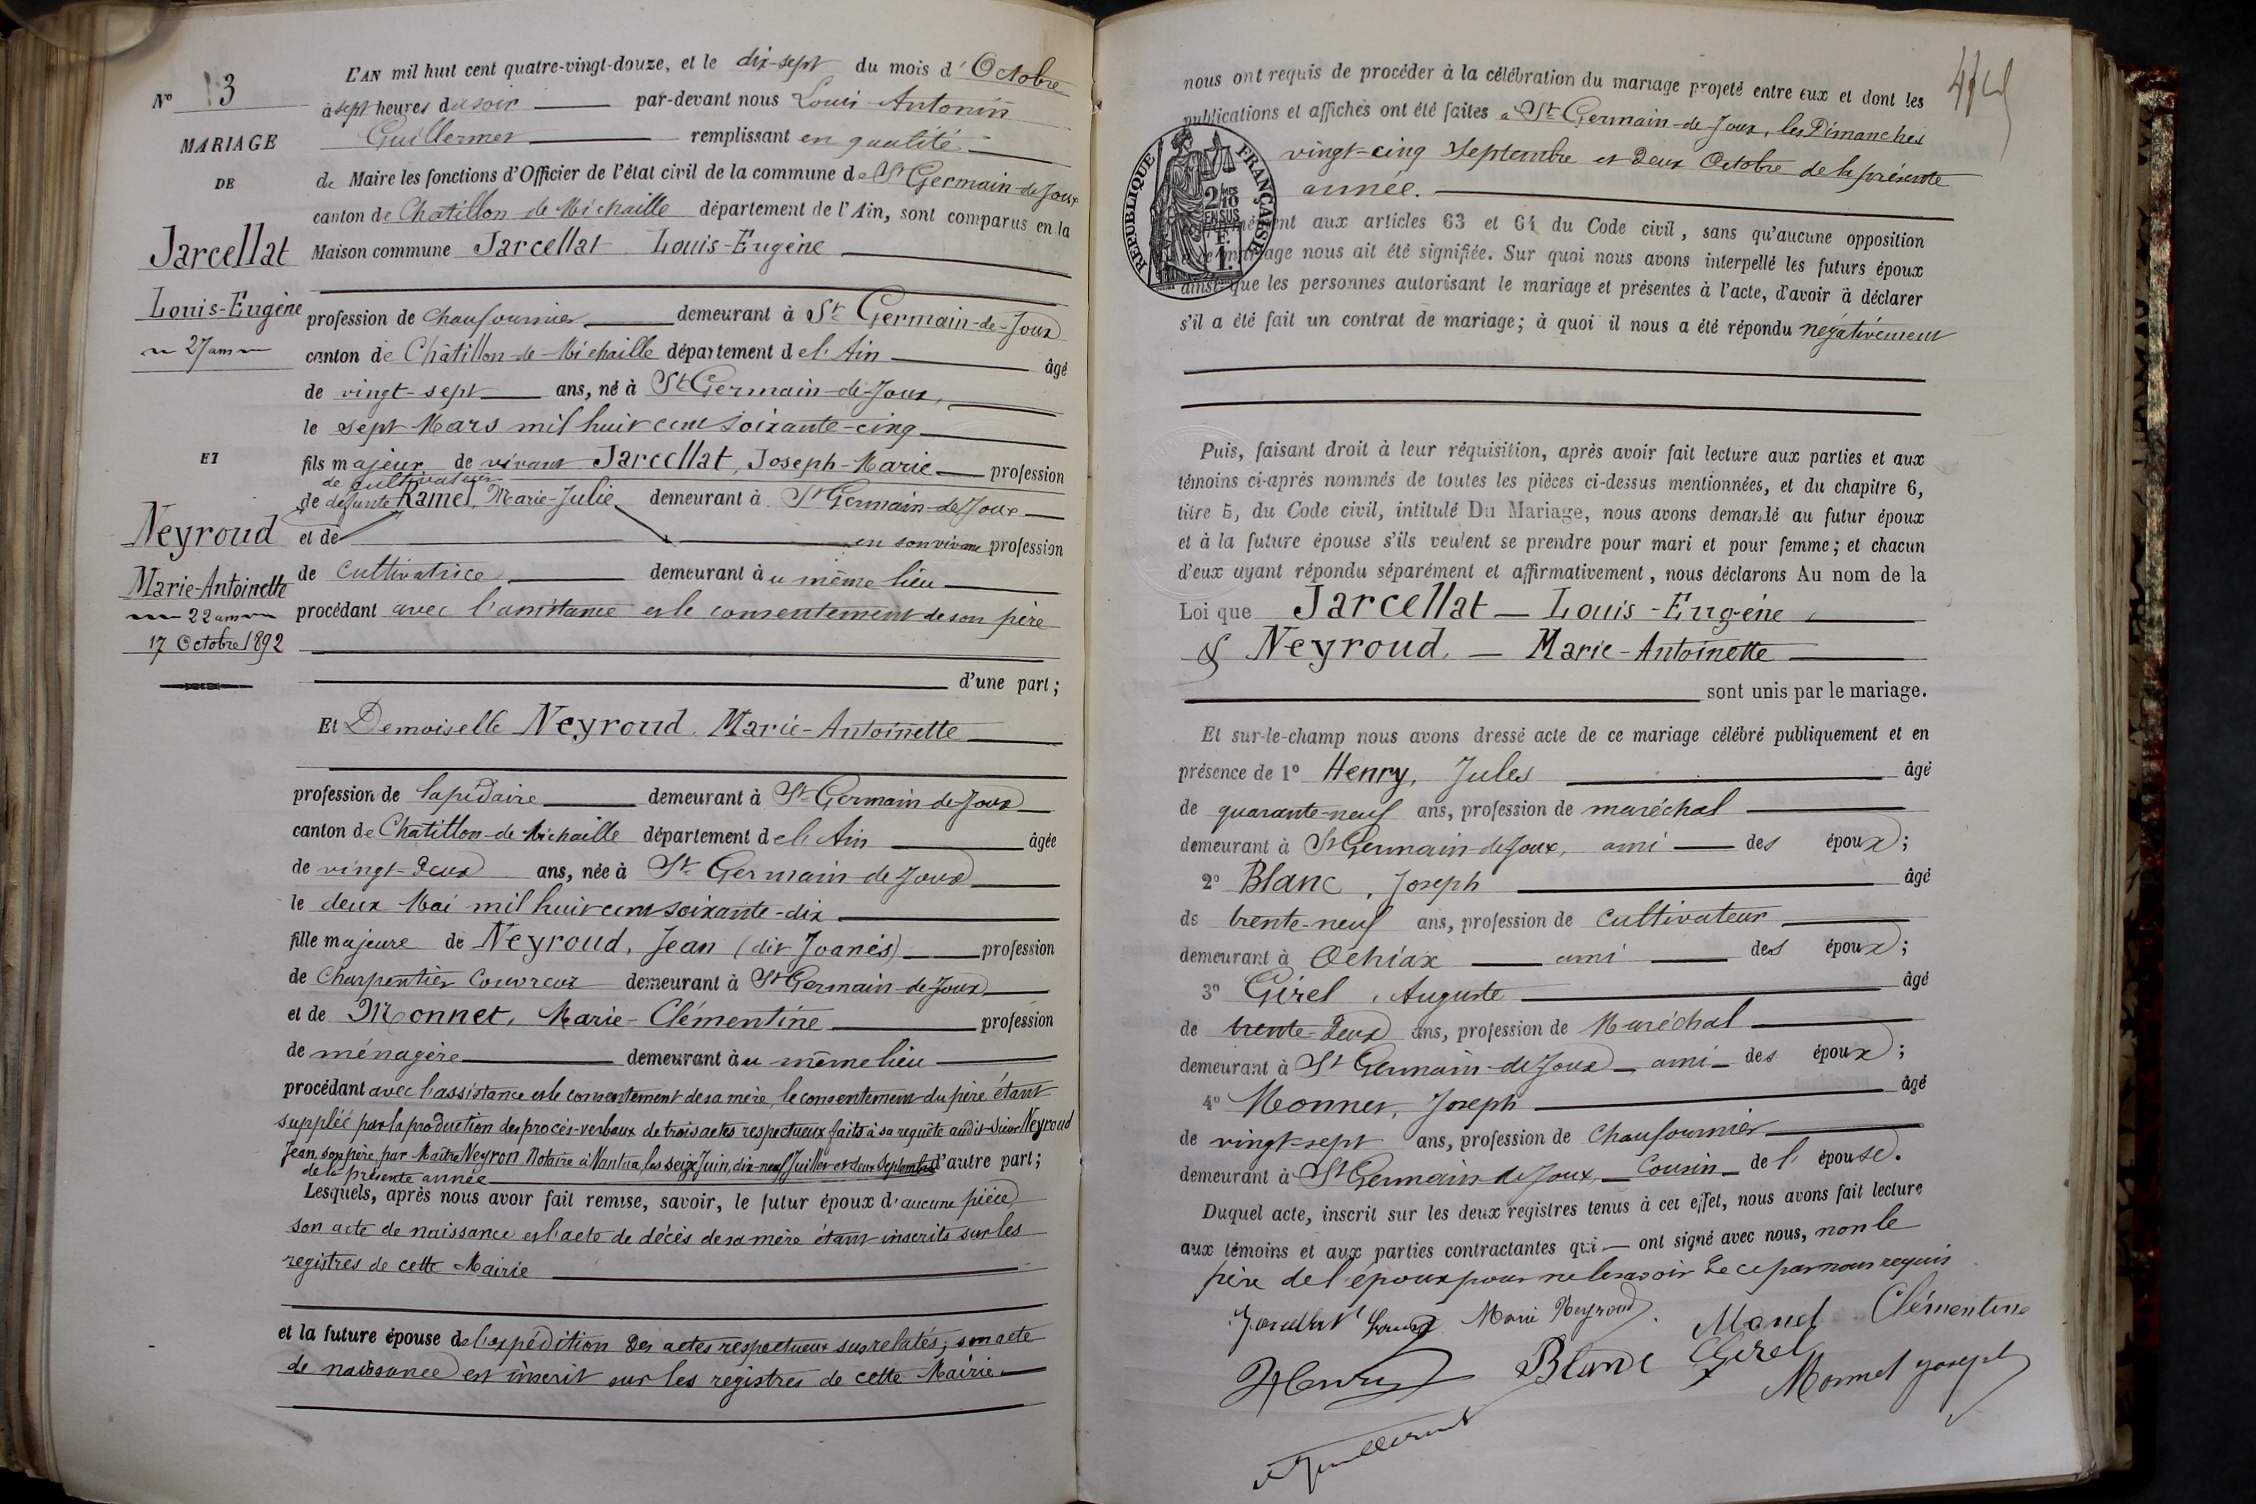 N° 3
MARIAGE
DE
Jarcellat
Louis-Eugène
27 ans
ET
Neyroud
Marie-Antoinette
22 ans
17 Octobre 1892
L'AN mil huit cent quatre-vingt-douze, et le dix-sept du mois d'Octobre
à sept heures du soir par-devant nous Louis Antonin
Guillermet remplissant en qualité
de Maire les fonctions d'Officier de l'état civil de la commune de St Germain-de-Joux
canton de Chatillon de Michaille département de l'Ain, sont comparus en la
Maison commune Jarcellat Louis-Eugène
profession de Chaufournier demeurant à St Germain-de-Joux
canton de Châtillon-de-Michaille département de l'Ain âgé
de vingt-sept ans, né à St Germain-de-Joux,
le sept Mars mil huit cent soixante-cinq
fils majeur de vivant Jarcellat, Joseph-Marie profession
de cultivateur
de defunte Ramel, Marie-Julie demeurant à St Germain-de-Joux
et de en son vivant profession
de cultivatrice demeurant au même lieu
procédant avec l'assistance et le consentement de son père
d'une part;
Et Demoiselle Neyroud Marie-Antoinette
profession de lapidaire demeurant à St Germain de Joux
canton de Chatillon-de-Michaille département de l'Ain âgée
de vingt-deux ans, née à St Germain de Joux
le deux Mai mil huit cent soixante-dix
fille majeure de Neyroud, Jean (dit Joanès) profession
de Charpentier Couvreur demeurant à St Germain-de-Joux
et de Monnet, Marie-Clémentine profession
de ménagère demeurant au même lieu
procédant avec l'assistance et le consentement de sa mère, le consentement du père étant
suppléé par la production des procès-verbaux de trois actes respectueux faits à sa requête audit sieur Neyroud
Jean, son père, par Maître Neyron Notaire à Nantua, les seize Juin, dix-neuf Juillet et deux Septembre d'autre part;
de la présente année
Lesquels, après nous avoir fait remise, savoir, le futur époux d'aucune pièce
son acte de naissance et l'acte de décès de sa mère étant inscrits sur les
registres de cette Mairie
et la future épouse de l'expédition des actes respectueux susrelatés; son acte
de naissance est inscrit sur les registres de cette Mairie
nous ont requis de procéder à la célébration du mariage projeté entre eux et dont les
publications et affiches ont été faites à St Germain-de-Joux, les Dimanches
vingt-cinq Septembre et deux Octobre de la présente
année.
RÉPUBLIQUE FRANÇAISE
2/10 EN SUS
F. 1.
aux articles 63 et 64 du Code civil, sans qu'aucune opposition
mariage nous ait été signifiée. Sur quoi nous avons interpellé les futurs époux
ainsi que les personnes autorisant le mariage et présentes à l'acte, d'avoir à déclarer
s'il a été fait un contrat de mariage; à quoi il nous a été répondu négativement
Puis, faisant droit à leur réquisition, après avoir fait lecture aux parties et aux
témoins ci-après nommés de toutes les pièces ci-dessus mentionnées, et du chapitre 6,
titre 5, du Code civil, intitulé Du Mariage, nous avons demandé au futur époux
et à la future épouse s'ils veulent se prendre pour mari et pour femme; et chacun
d'eux ayant répondu séparément et affirmativement, nous déclarons Au nom de la
Loi que Jarcellat - Louis-Eugène
& Neyroud - Marie-Antoinette
sont unis par le mariage.
Et sur-le-champ nous avons dressé acte de ce mariage célébré publiquement et en
présence de 1° Henry, Jules âgé
de quarante-neuf ans, profession de maréchal
demeurant à St Germain-de-Joux, ami des époux;
2° Blanc, Joseph âgé
de trente-neuf ans, profession de cultivateur
demeurant à Ochiax ami des époux;
3° Girel, Auguste âgé
de trente-deux ans, profession de Maréchal
demeurant à St Germain-de-Joux - ami - des époux;
4° Monnet, Joseph âgé
de vingt-sept ans, profession de Chaufournier
demeurant à St Germain-de-Joux, - Cousin - de l'épouse.
Duquel acte, inscrit sur les deux registres tenus à cet effet, nous avons fait lecture
aux témoins et aux parties contractantes qui - ont signé avec nous, non le
père de l'époux pour ne le savoir de ce par nous requis
Jarcellat Louis Marie Neyroud Monet Clémentine
Henry Blanc Girel Monnet Joseph
Guillermet